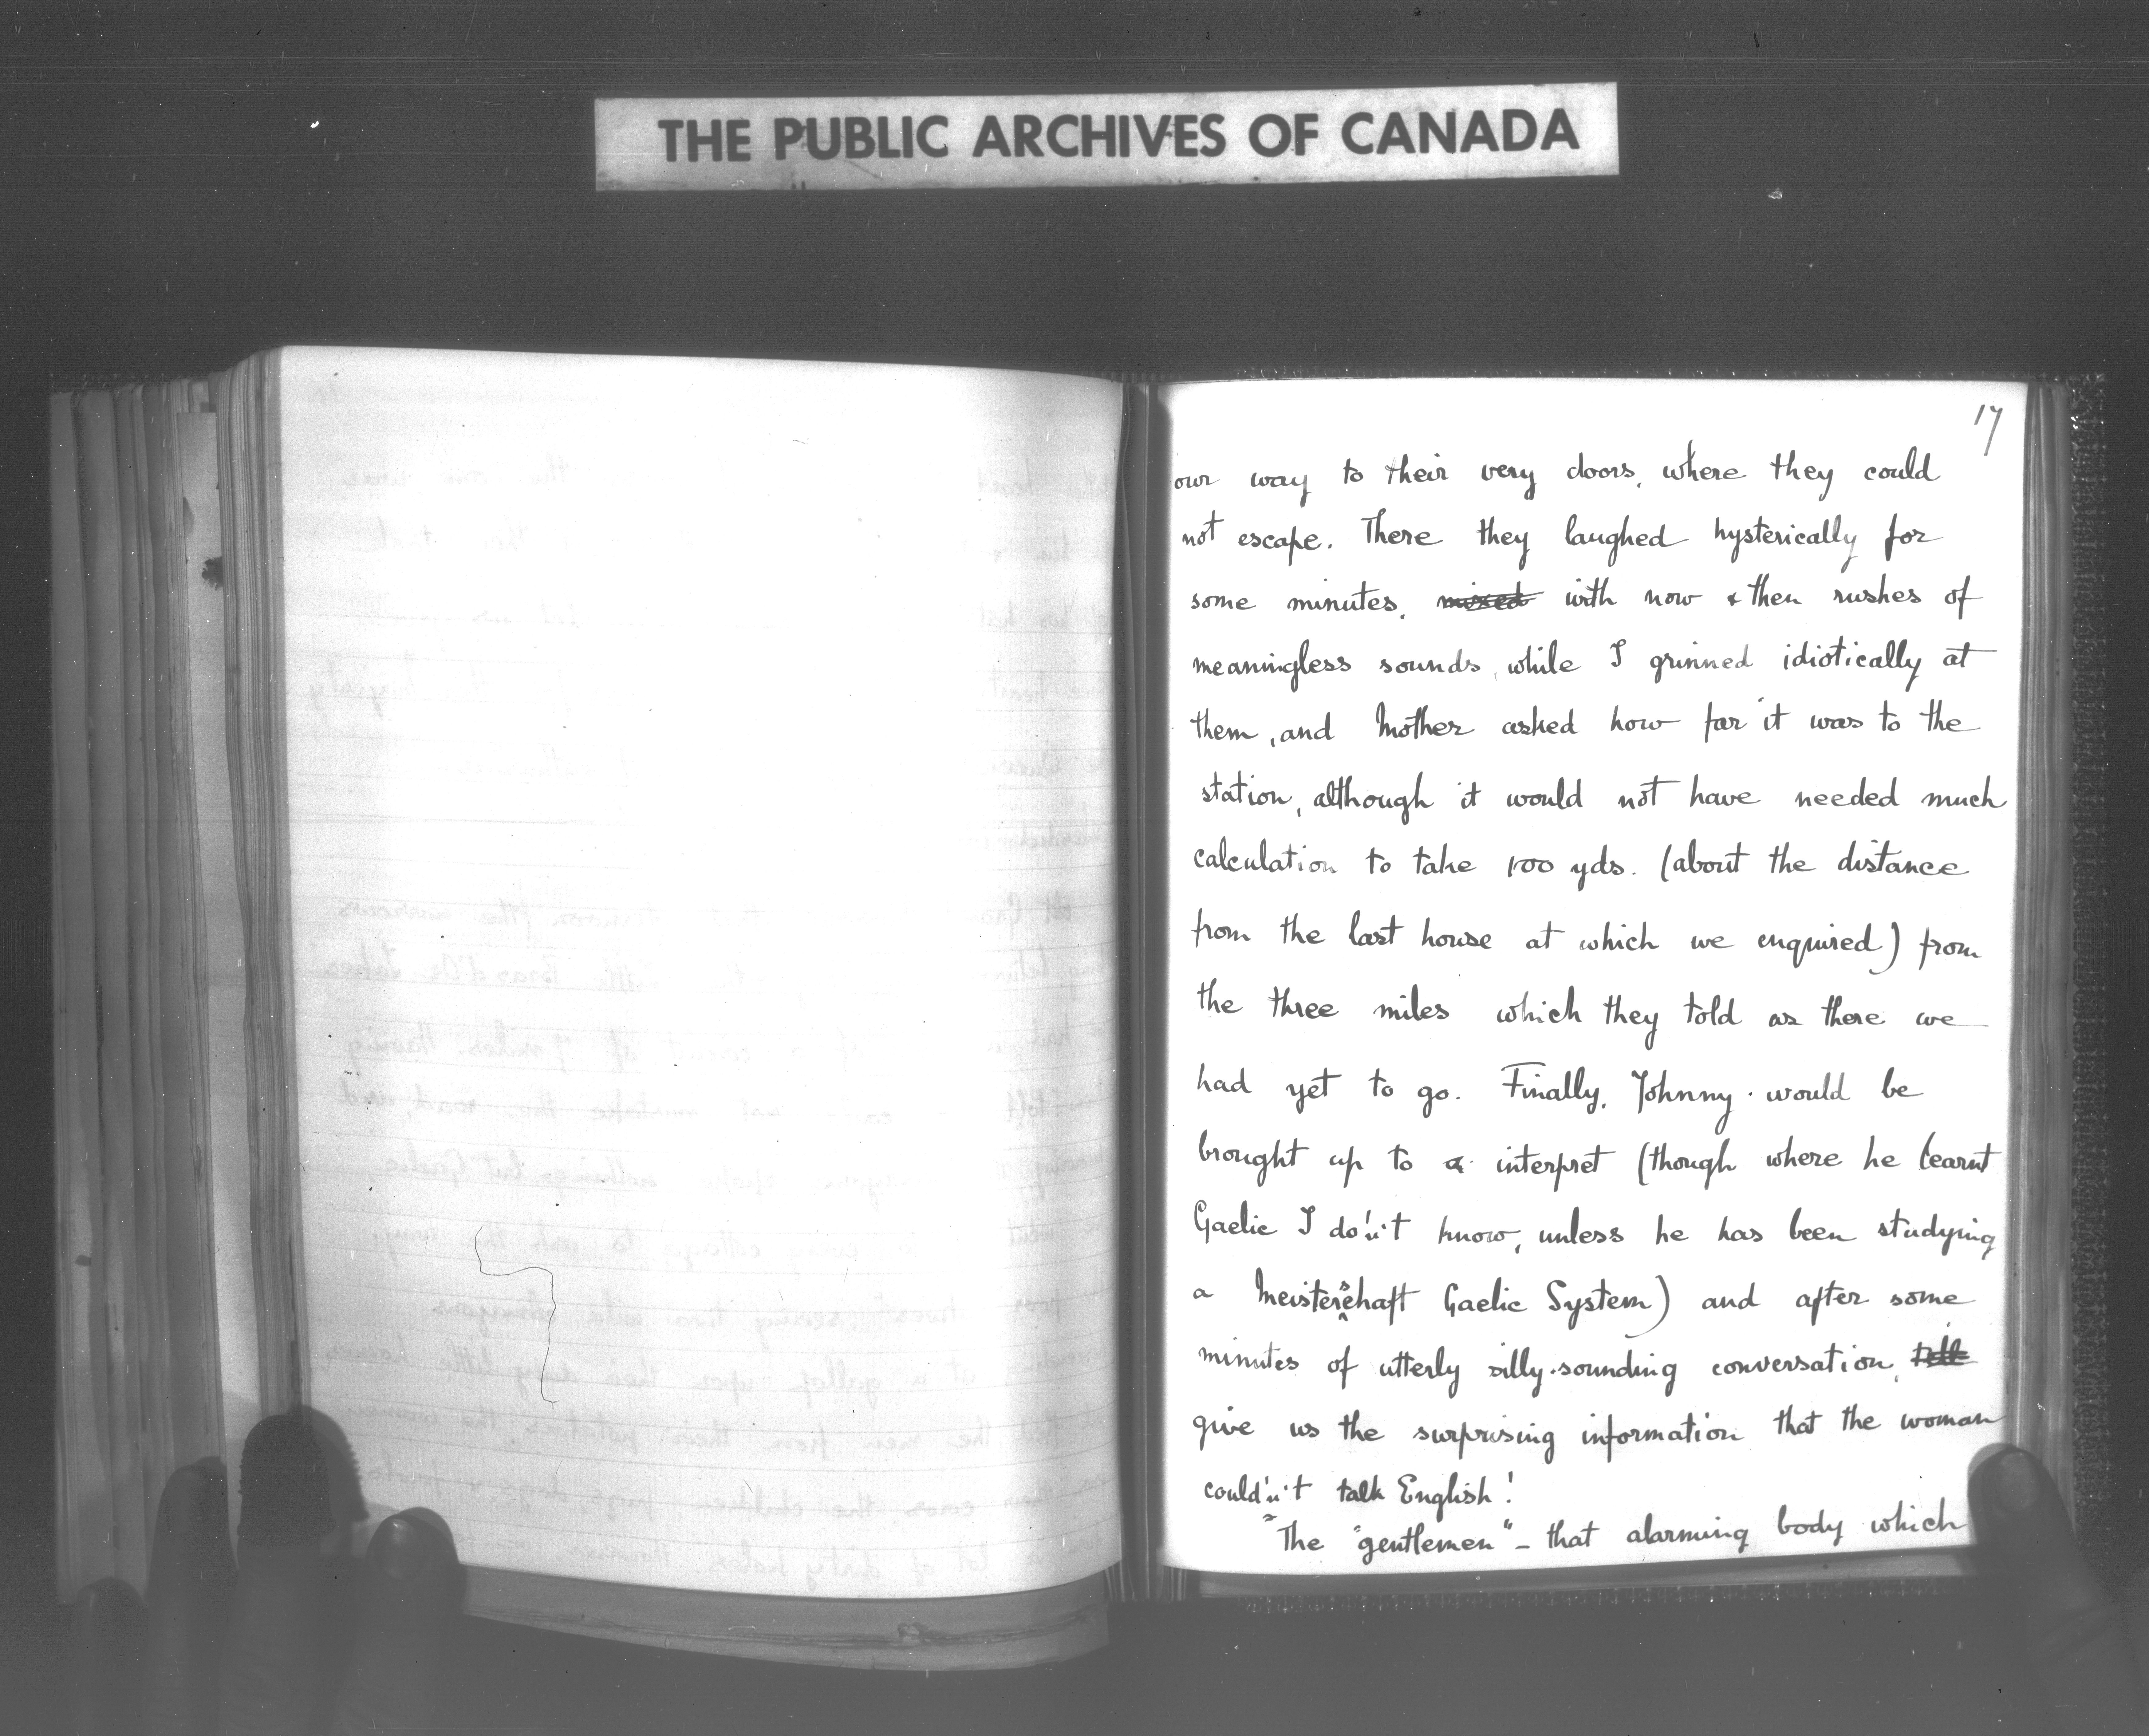 THE PUBLIC ARCHIVES OF CANADA
17
our way to their very doors, where they could
not escape. There they laughed hysterically for
some minutes, mixed with now & then rushes of
meaningless sounds, while I grinned idiotically at
them, and Mother asked how far it was to the
station, although it would not have needed much
calculation to take 100 yds. (about the distance
from the last house at which we enquired) from
the three miles which they told as there we
had yet to go. Finally, Johnny would be
brought up to a interpret (though where he learnt
Gaelic I do'n't know, unless he has been studying
a Meisterschaft Gaelic System) and after some
minutes of utterly silly-sounding conversation,
give us the surprising information that the woman
could'n't talk English!
"The "gentlemen" - that alarming body which